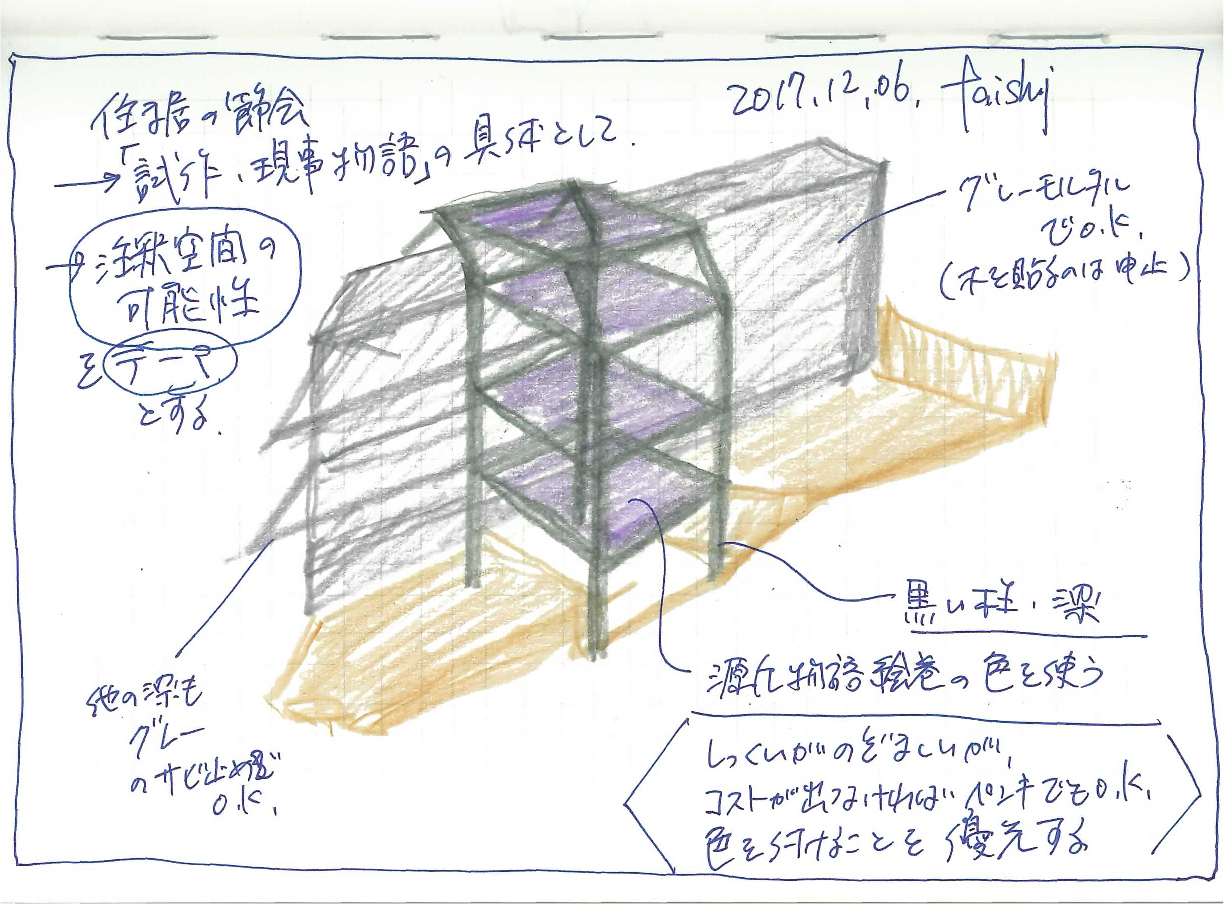 2017.12.06. taishi
住む居の節会
→「試作、現事物語」の具体として.
→注釈空間の
可能性
を テーマ
とする.
グレーモルタル
でO.K.
(木を貼るのは中止)
黒い柱・梁
源氏物語絵巻の色を使う
他の梁も
グレー
のサビ止め
O.K.
しっくいがのぞましいが、
コストが出なければペンキでもO.K.
色を付けることを優先する